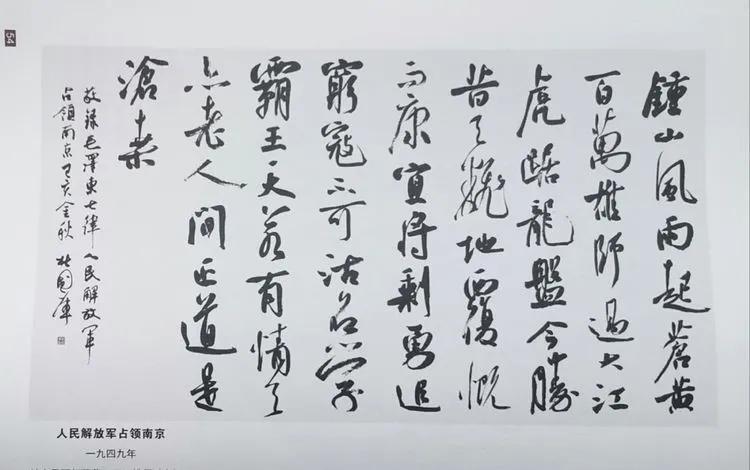 鍾山風雨起蒼黄
百萬雄師過大江
虎踞龍盤今勝
昔天翻地覆慨
而慷宜将剩勇追
窮寇不可沽名學
霸王天若有情天
亦老人間正道是
滄桑
敬録毛澤東七律人民解放軍
占領南京己亥金秋
人民解放军占领南京
一九四九年